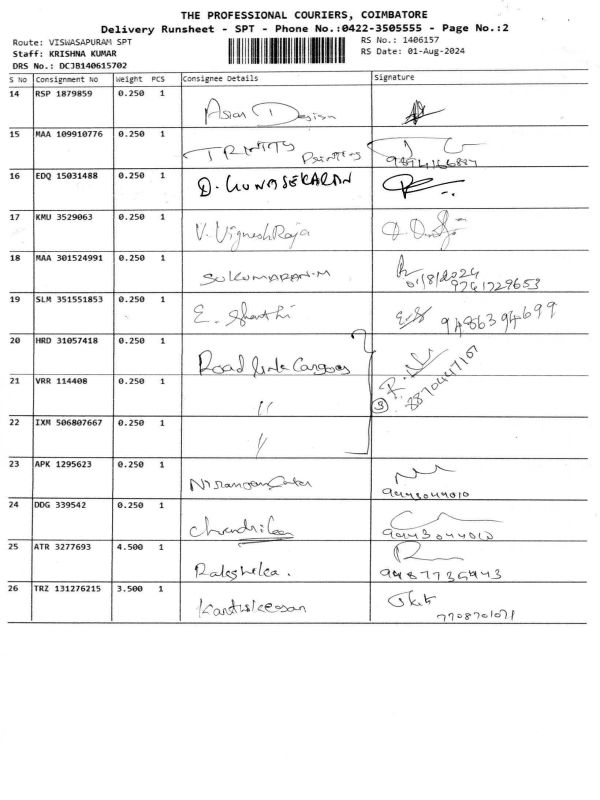 THE PROFESSIONAL COURIERS, COIMBATORE
Delivery Runsheet - SPT - Phone No.:0422-3505555 - Page No.:2
Route: VISWASAPURAM SPT
RS No.: 1406157
Staff: KRISHNA KUMAR
RS Date: 01-Aug-2024
DRS No.: DCJB140615702
S No Consignment No Weight PCS Consignee Details Signature
14 RSP 1879859 0.250 1 Asian Design
15 MAA 109910776 0.250 1 TRINITY Printing
16 EDQ 15031488 0.250 1 D. GUNASEKARAN
17 KMU 3529063 0.250 1 V. Vignesh Raja
18 MAA 301524991 0.250 1 SUKUMARAN.M 01/8/2024
19 SLM 351551853 0.250 1 E. Shanthi 9486394699
20 HRD 31057418 0.250 1 Road link Cargoes
21 VRR 114408 0.250 1 " 3 8870447107
22 IXM 506807667 0.250 1 "
23 APK 1295623 0.250 1 9443044010
24 DDG 339542 0.250 1 9443044010
25 ATR 3277693 4.500 1 9487735943
26 TRZ 131276215 3.500 1 Karthikeesan 7708701071